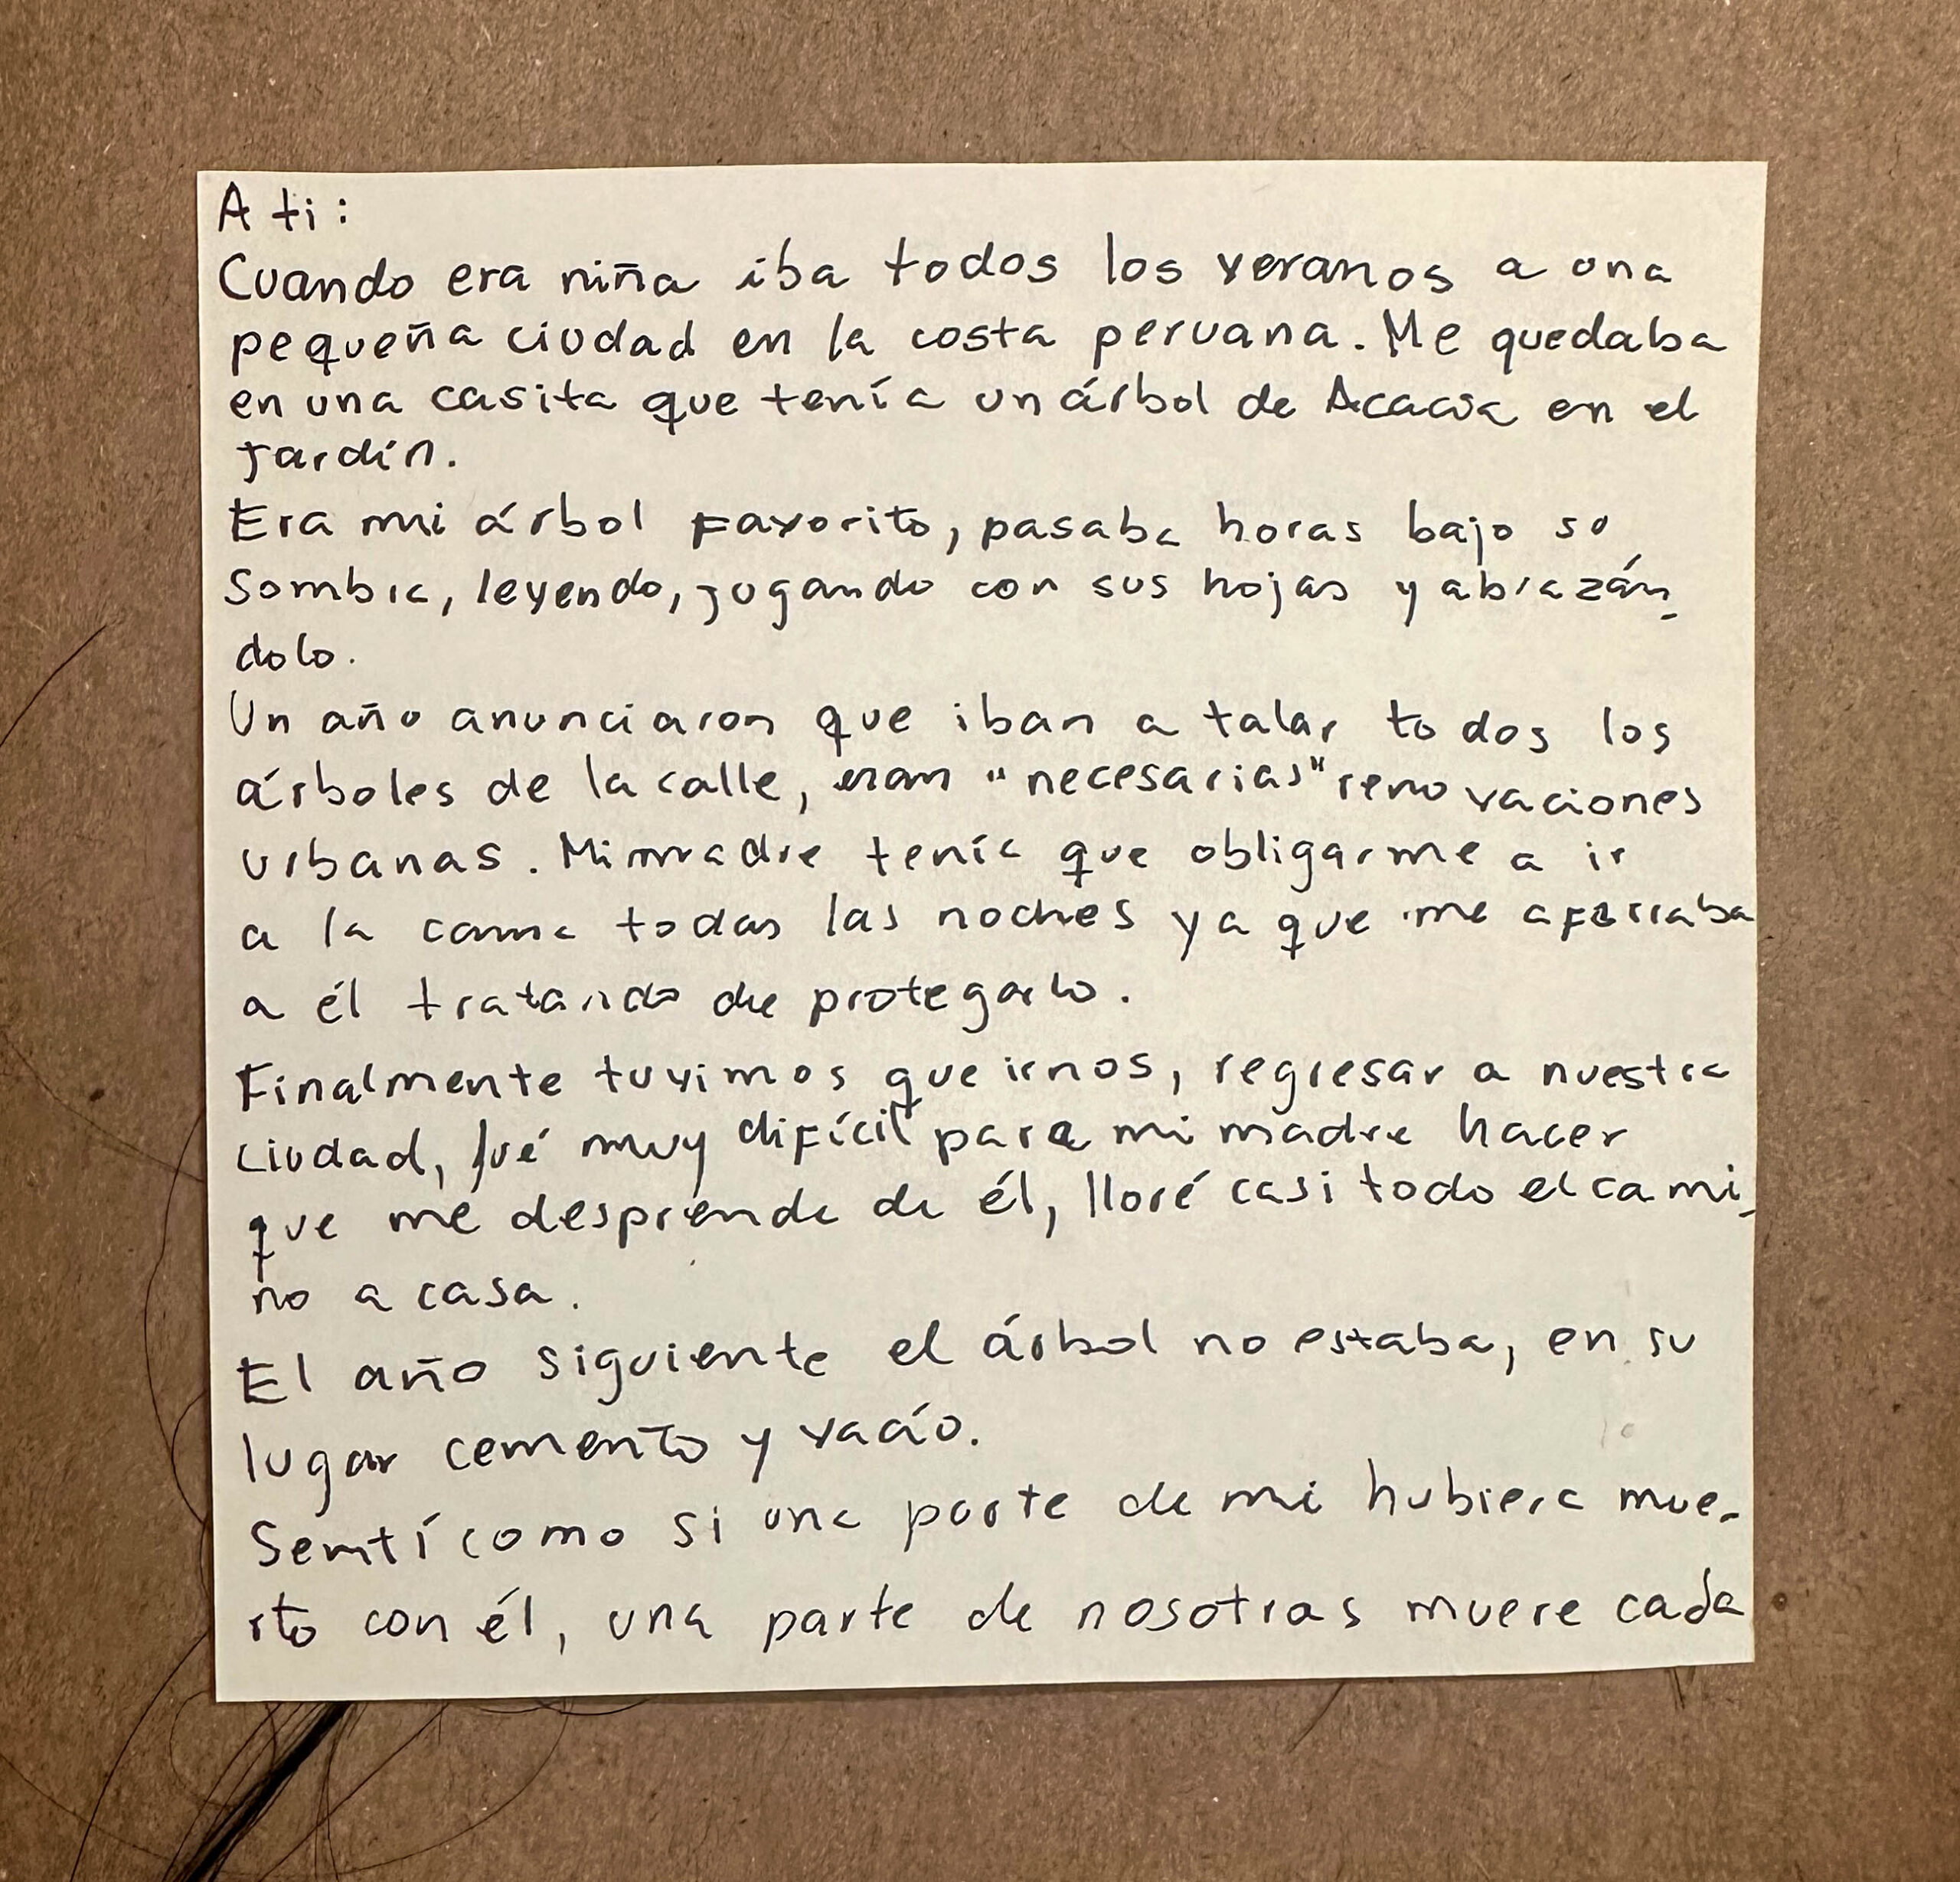 A ti:
Cuando era niña iba todos los veranos a una
pequeña ciudad en la costa peruana. Me quedaba
en una casita que tenía un árbol de Acacia en el
Jardín.
Era mi árbol favorito, pasaba horas bajo su
Sombra, leyendo, jugando con sus hojas y abrazán-
dolo.
Un año anunciaron que iban a talar todos los
árboles de la calle, eran "necesarias" renovaciones
urbanas. Mi madre tenía que obligarme a ir
a la cama todas las noches ya que me aferraba
a él tratando de protegarlo.
Finalmente tuvimos que irnos, regresar a nuestra
ciudad, fué muy difícil para mi madre hacer
que me desprenda de él, lloré casi todo el cami-
no a casa.
El año siguiente el árbol no estaba, en su
lugar cemento y vacío.
Sentí como si una parte de mi hubiera mue-
rto con él, una parte de nosotras muere cada